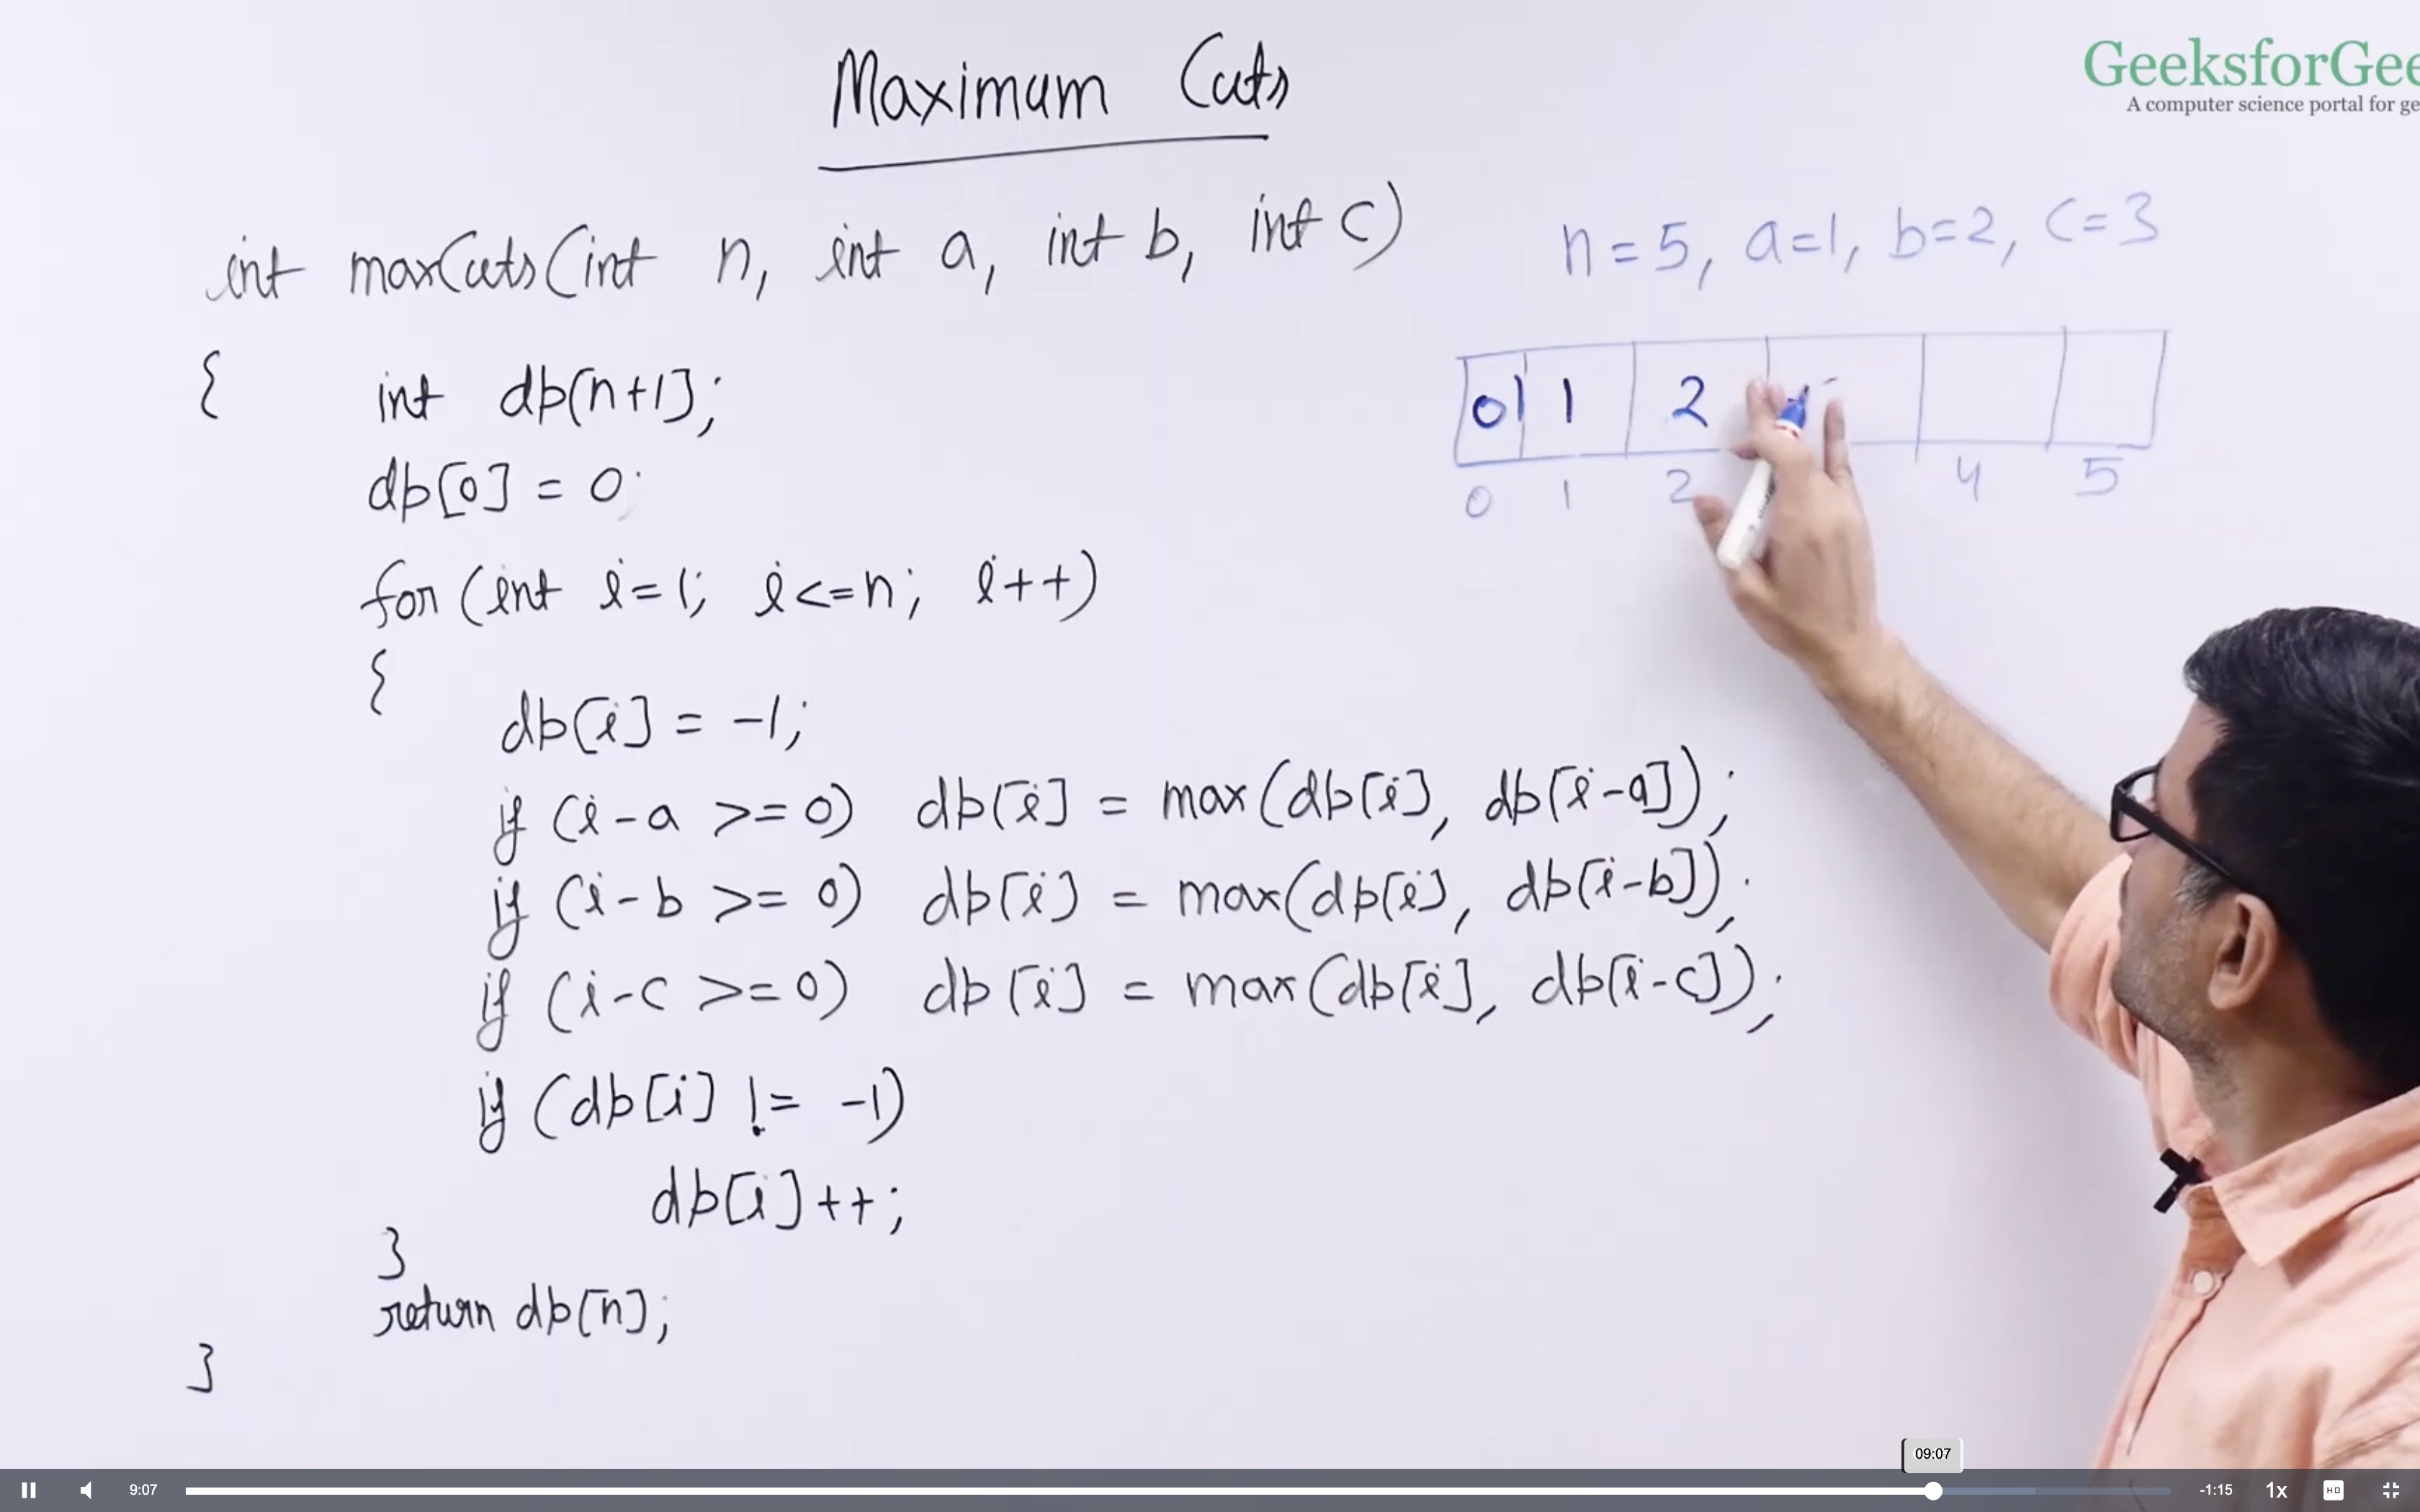 Maximum Cuts
GeeksforGee
A computer science portal for ge
int maxCuts(int n, int a, int b, int c)
n=5, a=1, b=2, c=3
{ int dp[n+1];
0 1 2
0 1 2 4 5
dp[0] = 0;
for (int i=1; i<=n; i++)
{
dp[i] = -1;
if (i-a >=0) dp[i] = max(dp[i], dp[i-a]);
if (i-b >= 0) dp[i] = max(dp[i], dp[i-b]);
if (i-c >=0) dp[i] = max(dp[i], dp[i-c]);
if (dp[i] != -1)
dp[i]++;
}
return dp[n];
}
09:07
9:07
-1:15
1x
HD